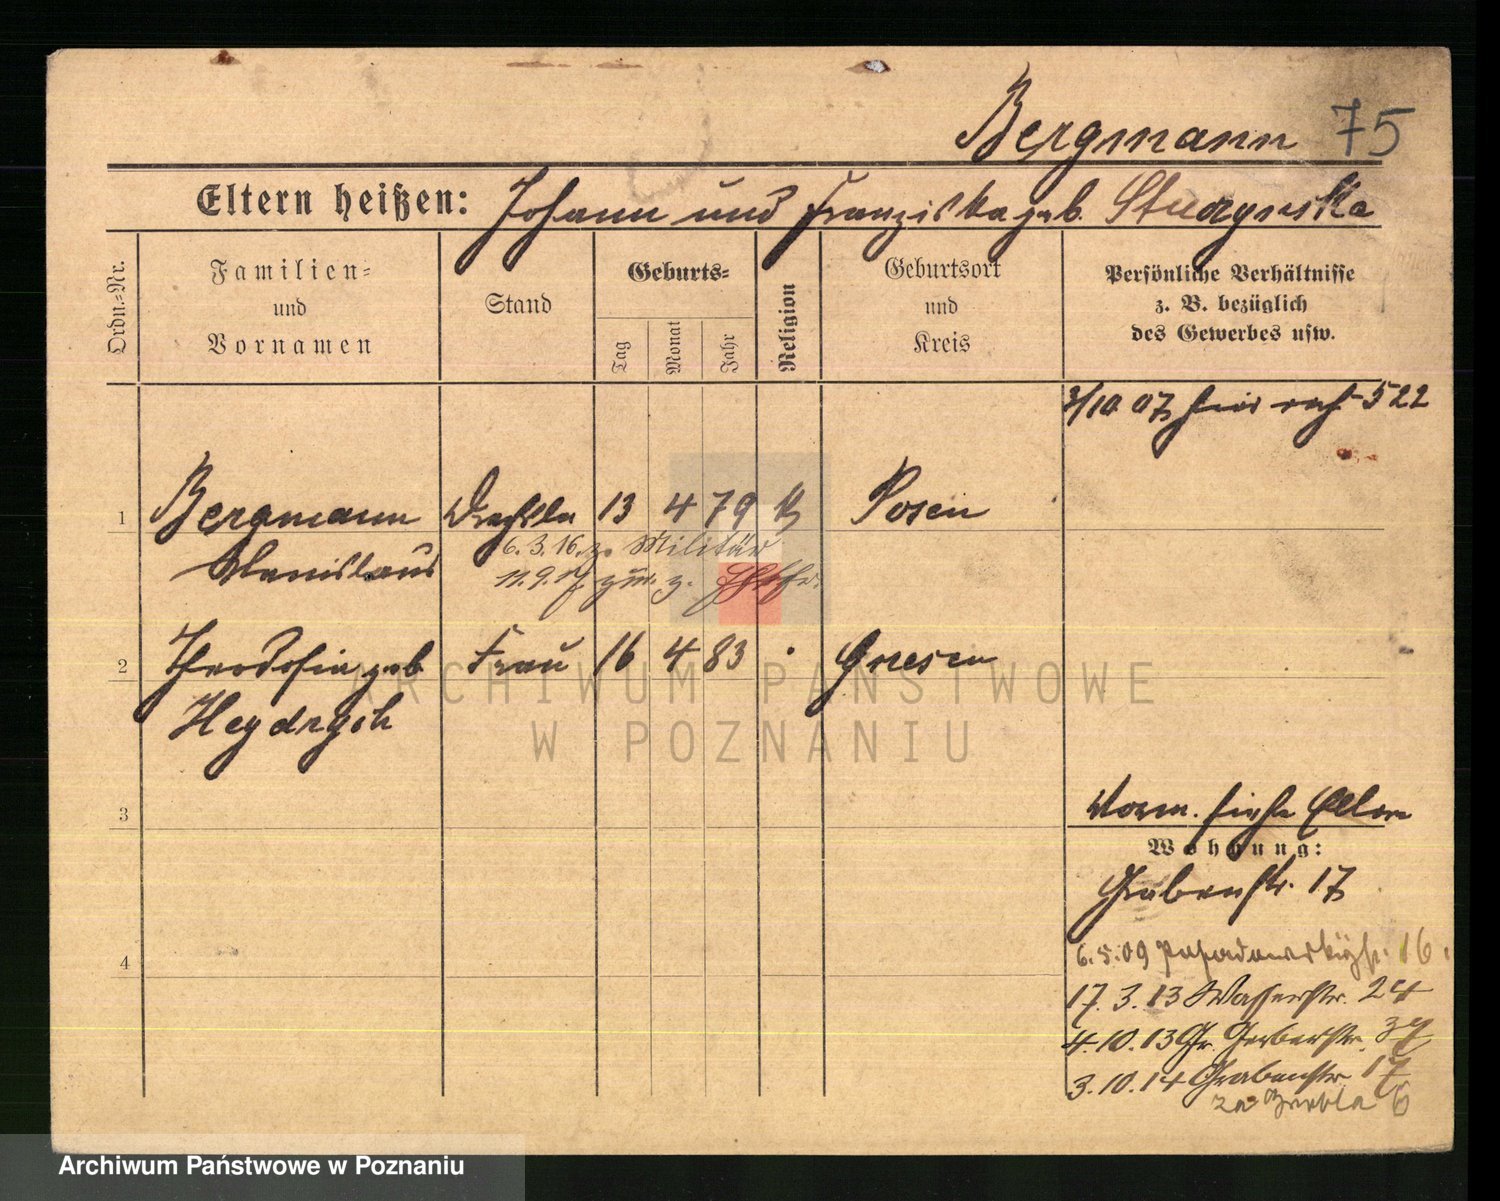 Bergmann 75
Eltern heißen: Johann und Franziska geb.
Ordn.-Nr.
Familien-
und
Vornamen
Stand
Geburts-
Tag
Monat
Jahr
Religion
Geburtsort
und
Kreis
Persönliche Verhältnisse
z. B. bezüglich
des Gewerbes usw.
3/10 07 522
1 Bergmann 13 4 79 k Posen
Stanislaus
6.3.16. z. Militär
11.9.17. z.
2 Theodosia geb Frau 16 4 83 Gnesen
Heydrych
3
Vorm. siehe Eltern
Wohnung:
Grabenstr. 17
4
6.5.09 16.
17.3.13 Wasserstr. 24
4.10.13 Gr. Gerberstr.
3.10.14 Grabenstr. 17
Grobla 6
ARCHIWUM PAŃSTWOWE
W POZNANIU
Archiwum Państwowe w Poznaniu